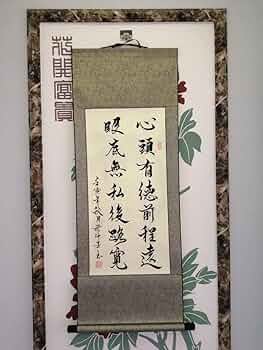 花開富貴
心頭有德前程遠
眼底無私後路寬